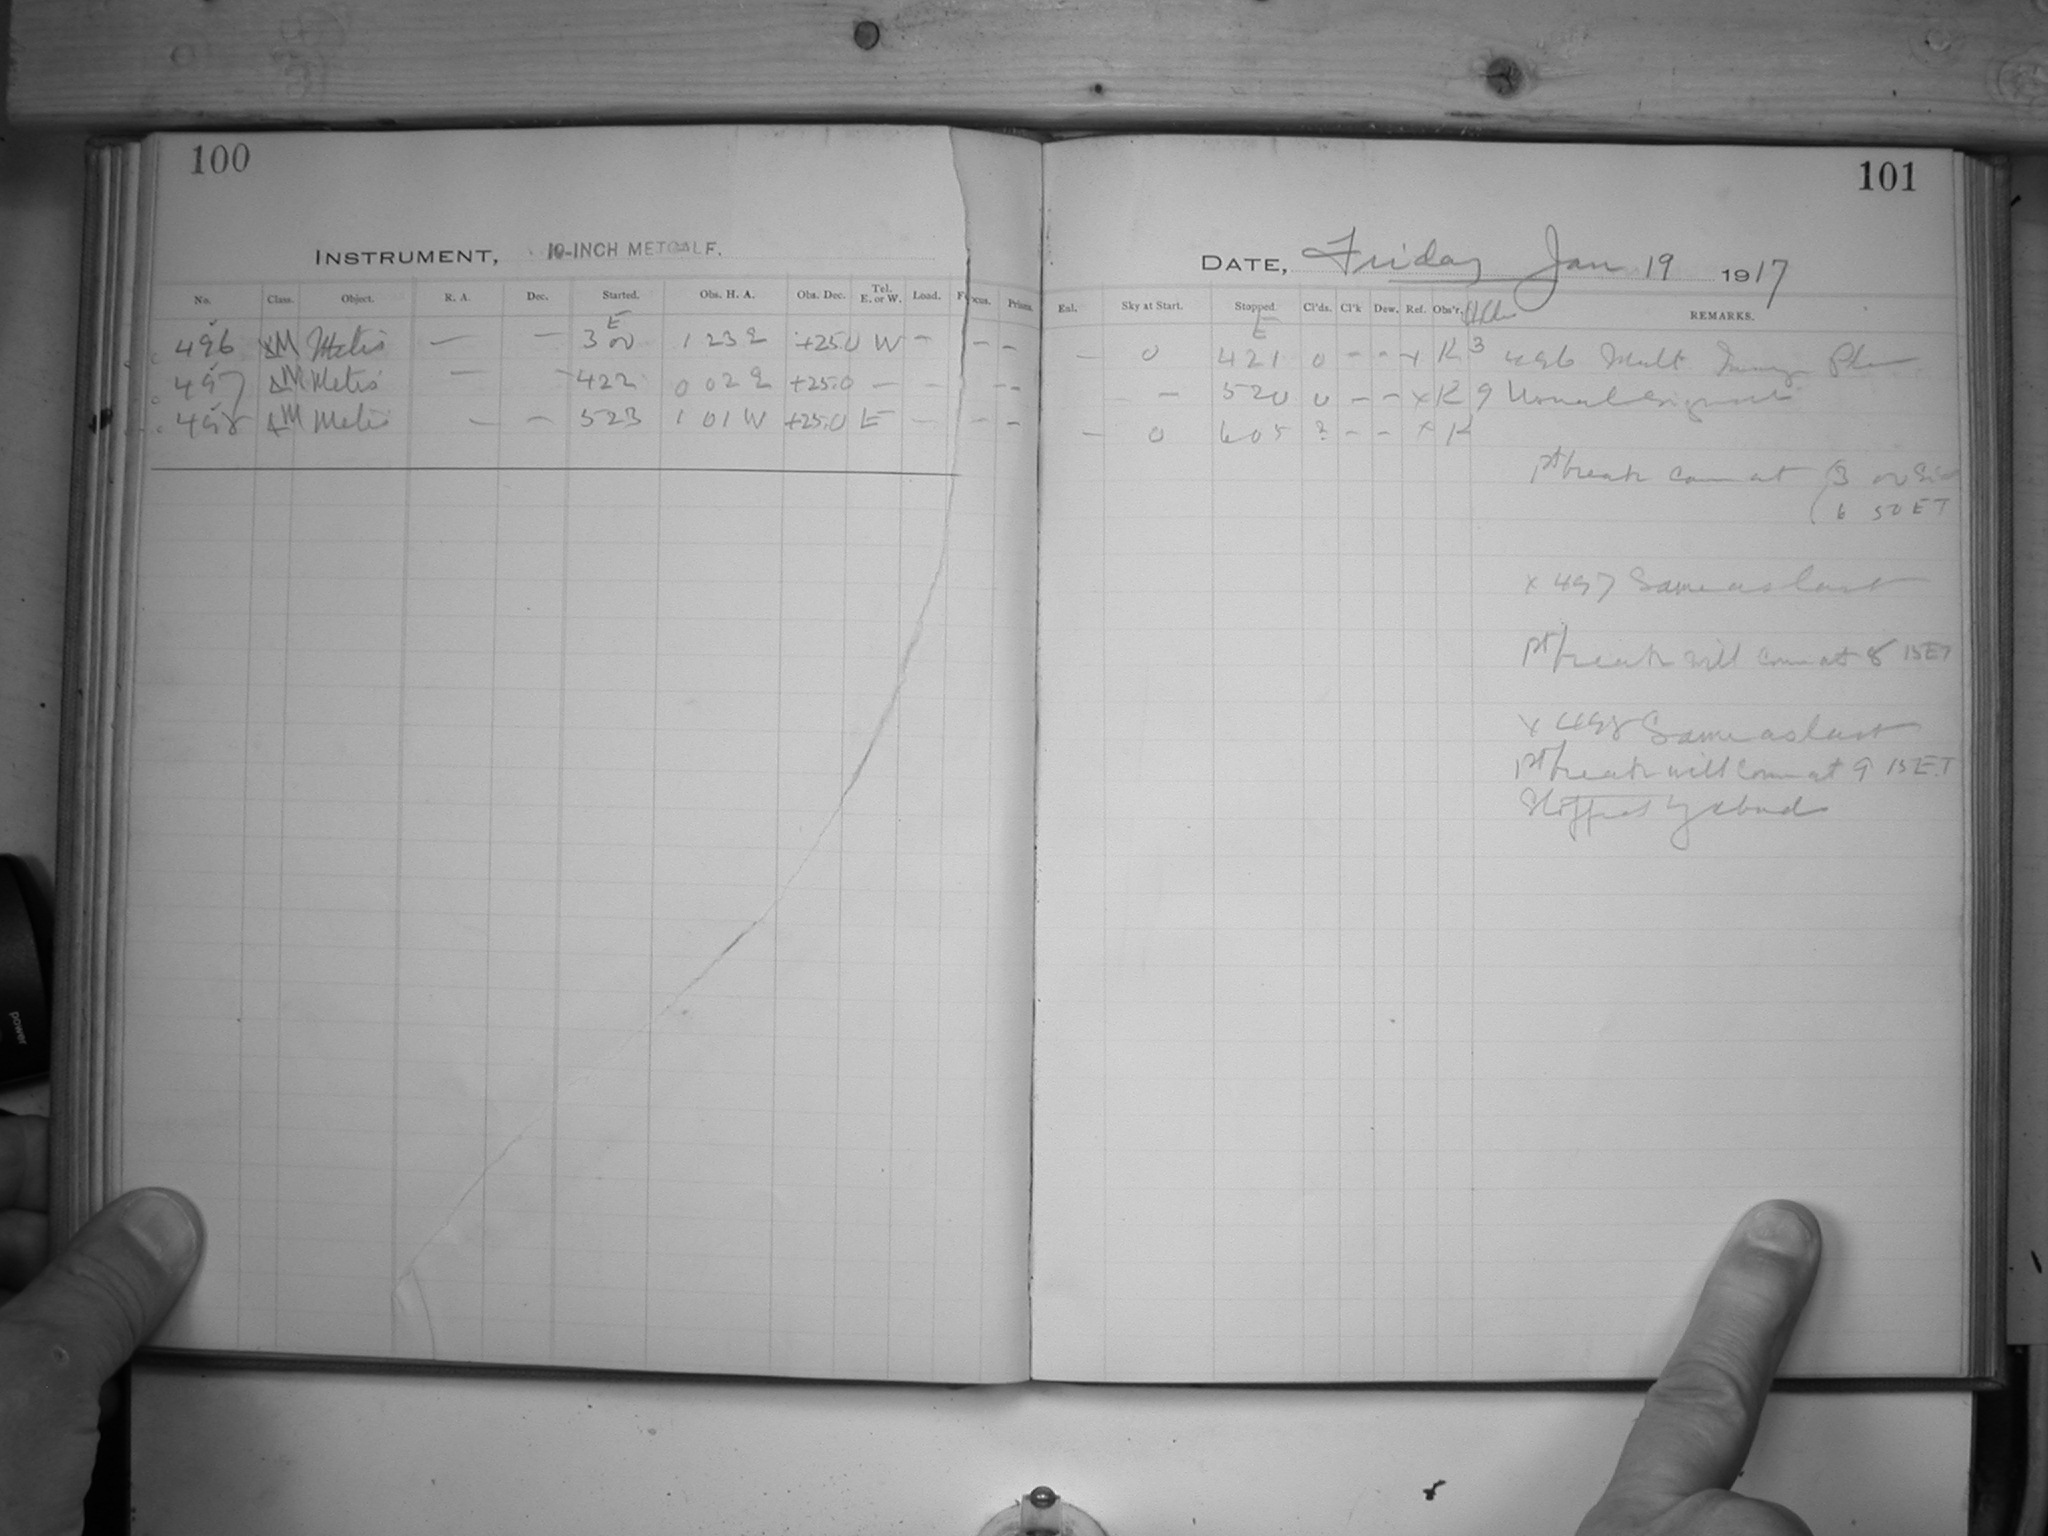 100
INSTRUMENT, 10-INCH METCALF.
No. Class. Object. R. A. Dec. Started. Obs. H. A. Obs. Dec. Tel. E. or W. Load. Focus. Prisms.
E
496 M Metis — — 3 00 1 23 E +25.0 W — — —
497 M Metis — — 422 0 02 E +25.0 — — — —
498 M Metis — — 523 1 01 W +25.0 E — — —
101
DATE, Friday Jan 19 1917
Eal. Sky at Start. Stopped. Cl'ds. Cl'k Dew. Ref. Obs'r. REMARKS.
E
— 0 421 0 — — x K 3 496 Mult
— 520 0 — — x K 9 Usual
— 0 605 ? — — x K
pt break com at 3 00
6 50 ET
x 497 Same as last
pt break will com at 8 15 ET
x 498 Same as last
pt break will com at 9 15 ET
Stopped by clouds
power